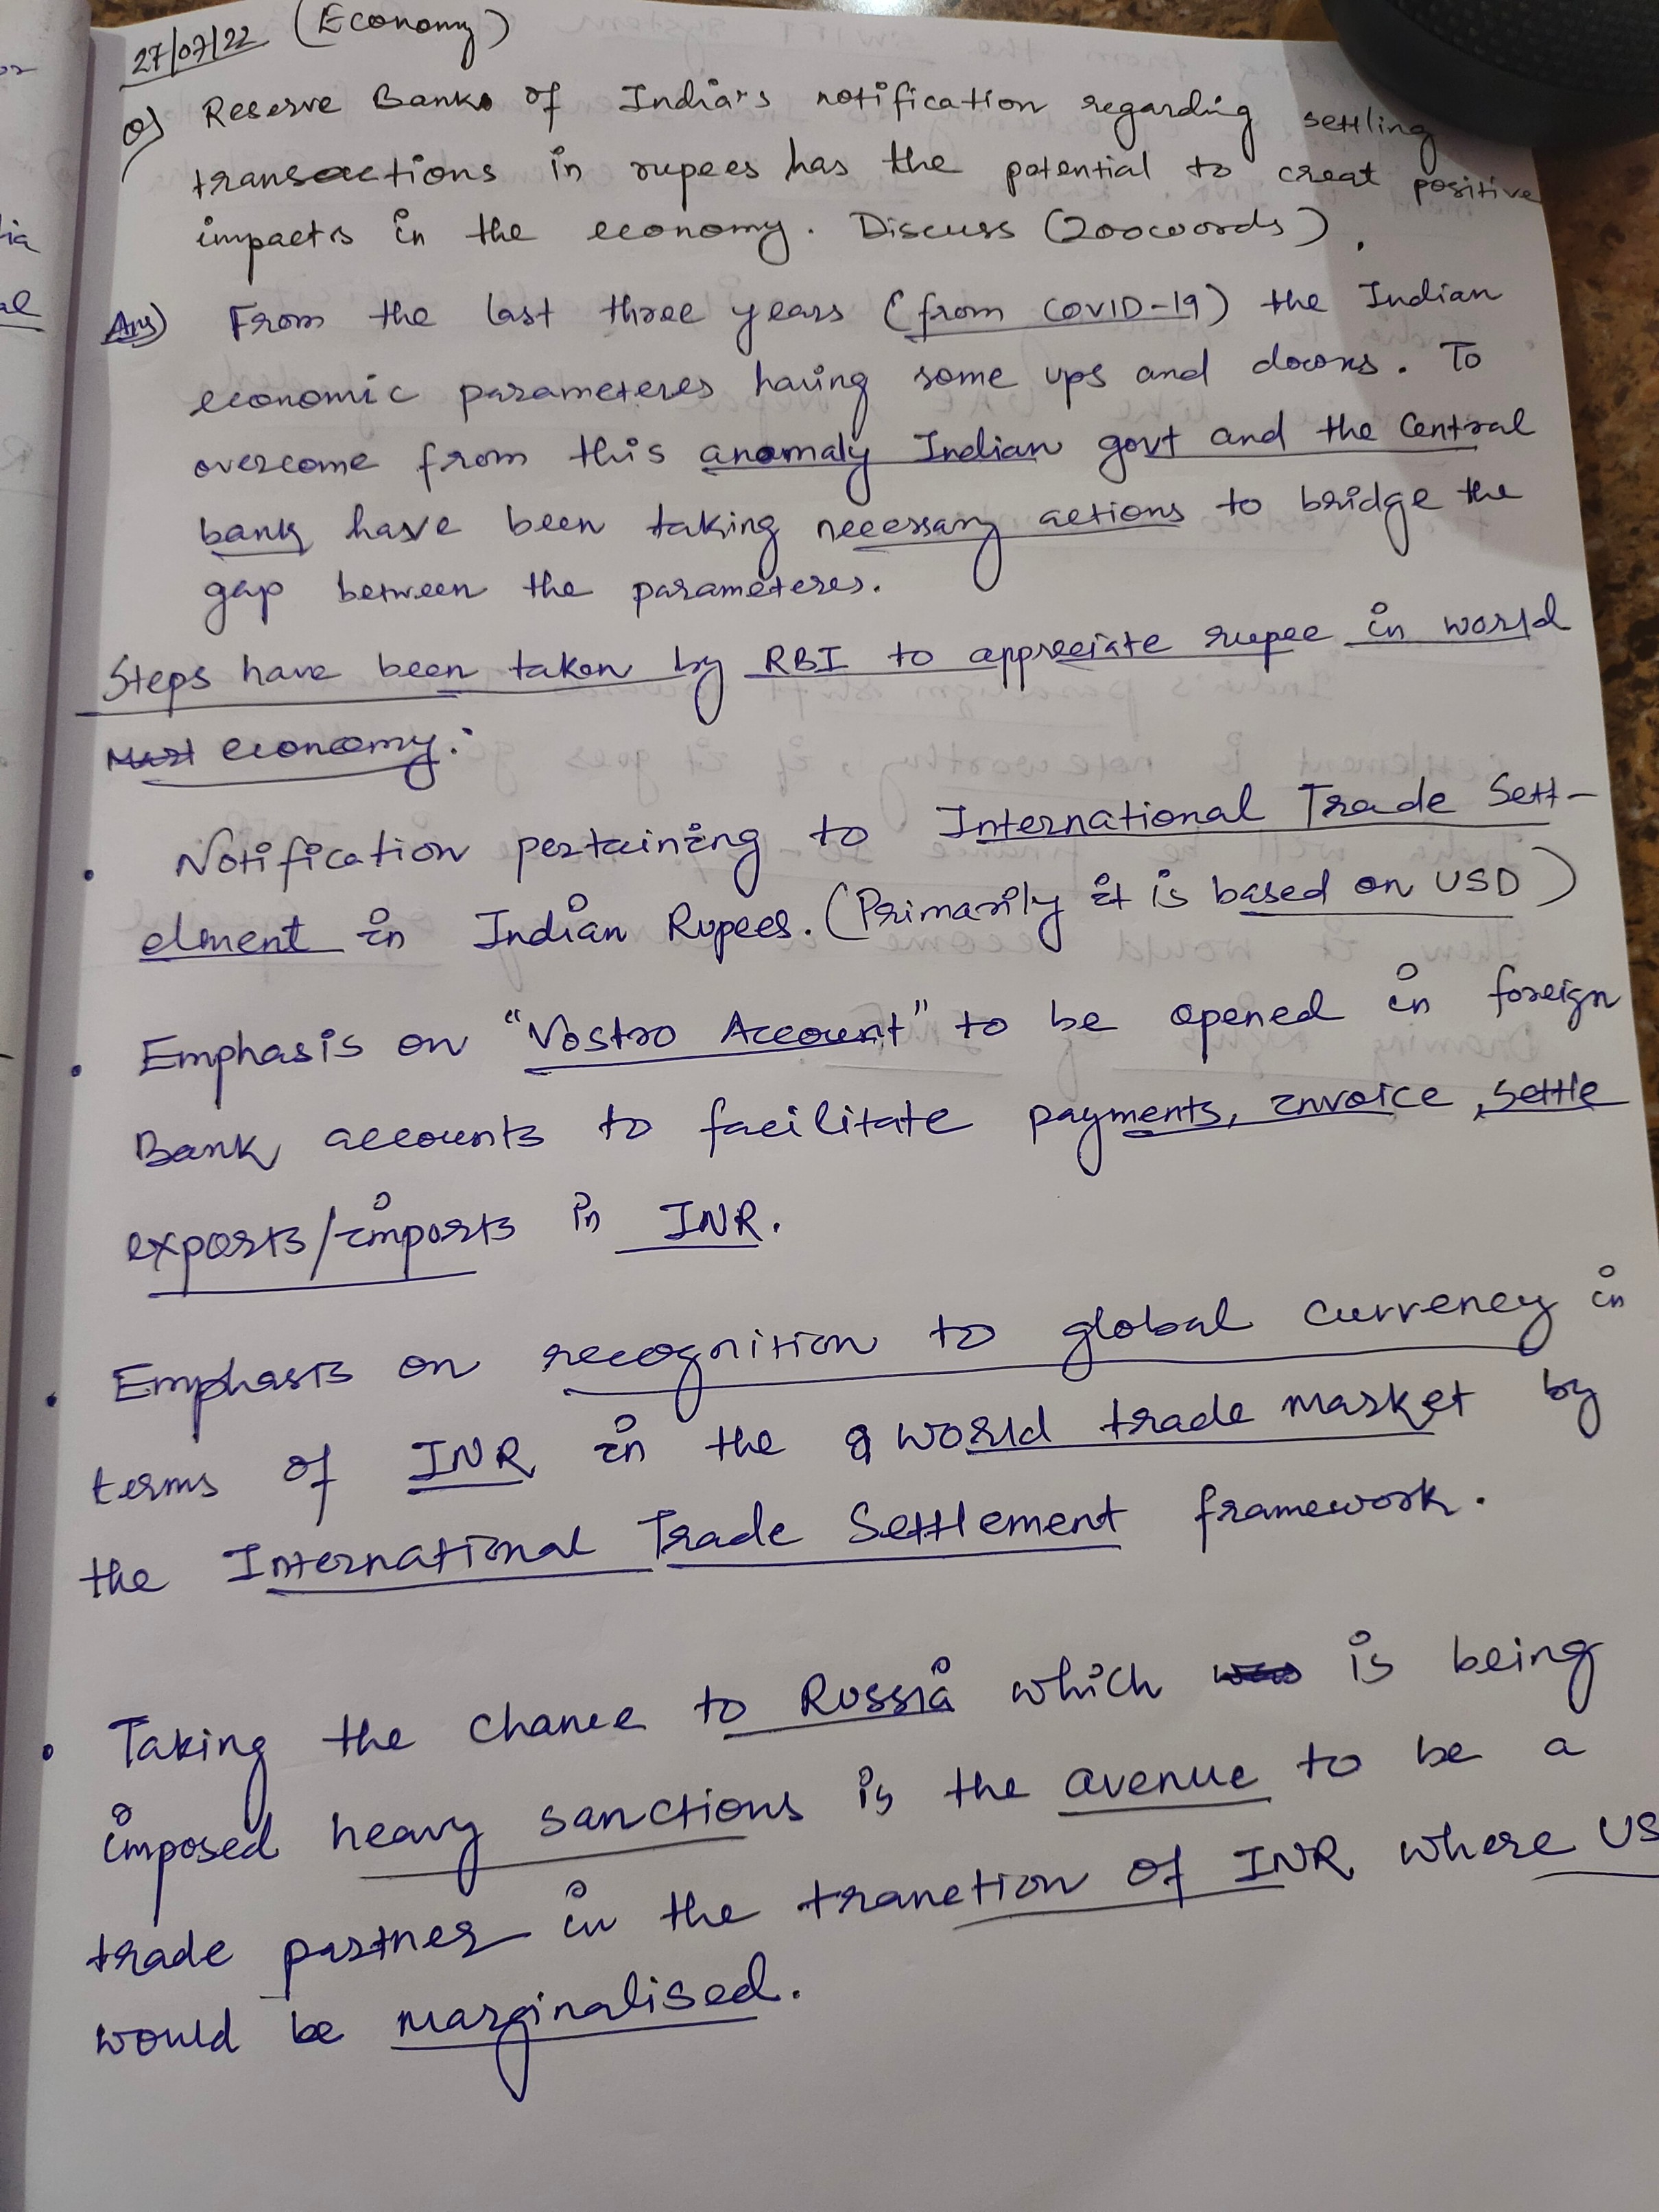 27/07/22 (Economy)
Q) Reserve Bank of India's notification regarding settling
transactions in rupees has the potential to creat positive
impacts in the economy. Discuss (200words).
Ans) From the last three years (from COVID-19) the Indian
economic parameteres having some ups and downs. To
overcome from this anomaly Indian govt and the Central
bank have been taking necessary actions to bridge the
gap between the parameteres.
Steps have been taken by RBI to appreciate rupee in world
economy:
• Notification pertaining to International Trade Sett-
elment in Indian Rupees. (Primarily it is based on USD)
• Emphasis on "Vostro Account" to be opened in foreign
Bank accounts to facilitate payments, invoice, settle
exports/imports in INR.
• Emphasis on recognition to global currency in
terms of INR in the world trade market by
the International Trade Settlement framework.
• Taking the chance to Russia which is being
imposed heavy sanctions is the avenue to be a
trade partner in the tranction of INR where US
would be marginalised.